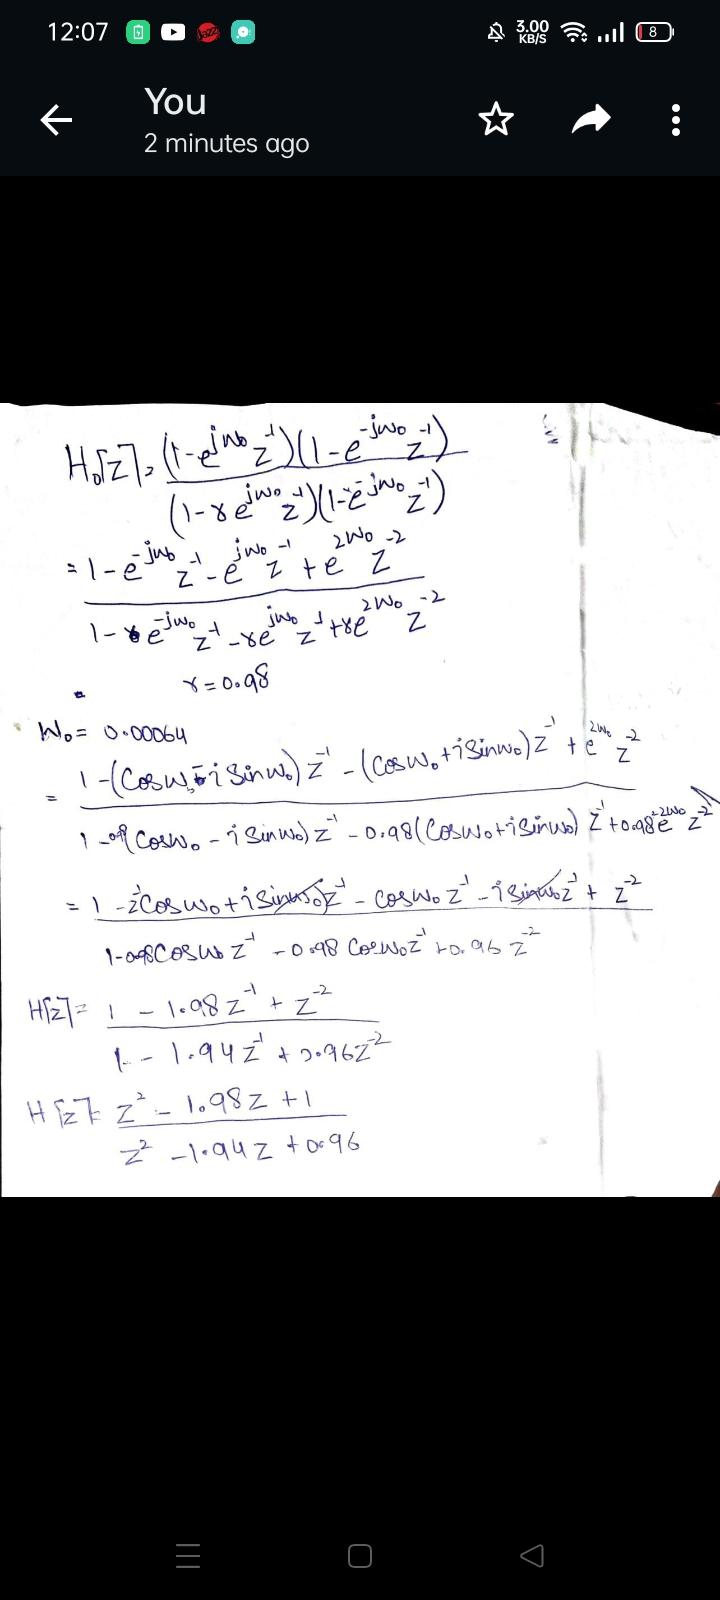 12:07 3.00 KB/S 8
You
2 minutes ago
H₀[z] = (1-e^{jw₀} z^{-1})(1-e^{-jw₀} z^{-1})
(1-re^{jw₀} z^{-1})(1-re^{-jw₀} z^{-1})
= 1-e^{-jw₀} z^{-1} - e^{jw₀} z^{-1} + e^{2w₀} z^{-2}
1-re^{-jw₀} z^{-1} - re^{jw₀} z^{-1} + re^{2w₀} z^{-2}
r = 0.98
W₀ = 0.00064
= 1-(Cosw₀-iSinw₀) z^{-1} - (Cosw₀+iSinw₀) z^{-1} + e^{2w₀} z^{-2}
1-0.98(Cosw₀ - iSinw₀) z^{-1} - 0.98(Cosw₀+iSinw₀) z^{-1} + 0.98e^{2w₀} z^{-2}
= 1 - z^{-1}Cosw₀ + iSinw₀ z^{-1} - Cosw₀ z^{-1} - iSinw₀ z^{-1} + z^{-2}
1-0.98Cosw₀ z^{-1} - 0.98 Cosw₀ z^{-1} + 0.96 z^{-2}
H[z] = 1 - 1.98 z^{-1} + z^{-2}
1 - 1.94 z^{-1} + 0.96 z^{-2}
H[z] = z² - 1.98z + 1
z² - 1.94z + 0.96